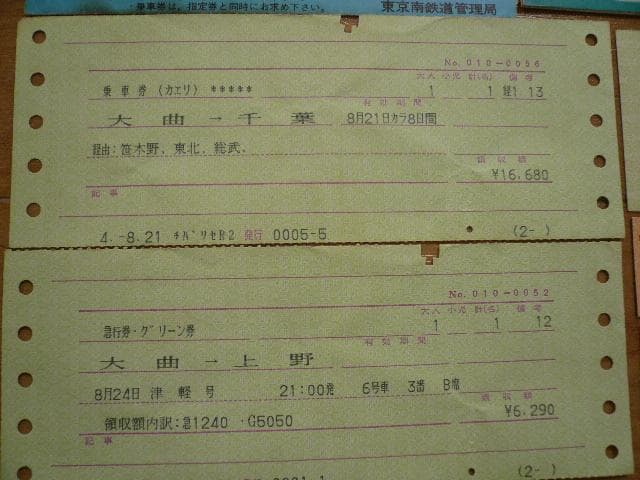 乗車券は、指定券と同時にお求め下さい。 東京南鉄道管理局
No. 010-0056
大人 小児 計(名) 備考
乗車券 (カエリ) ***** 1 1 経1 13
有効期間
大曲→千葉 8月21日カラ8日間
経由:笹木野、東北、総武、
領収額
¥16,680
記事
4.-8.21 チバリセR2 発行 0005-5 (2- )
No. 010-0052
大人 小児 計(名) 備考
急行券・グリーン券 1 1 12
有効期間
大曲→上野
8月24日 津軽号 21:00発 6号車 3番 B席
領収額
¥6,290
領収額内訳:急1240 ・G5050
記事
(2- )